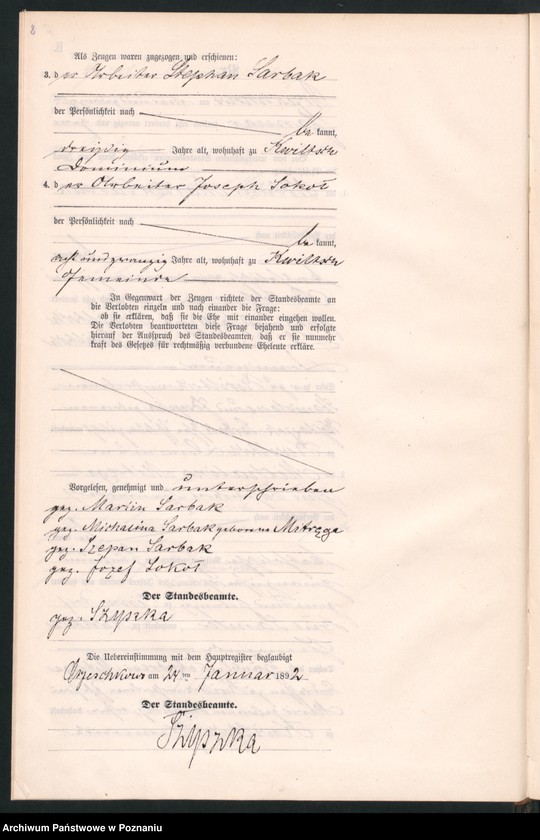 8
Als Zeugen waren zugezogen und erschienen:
3. der Arbeiter Stephan Sarbak
der Persönlichkeit nach
be kannt,
dreißig Jahre alt, wohnhaft zu Kwiltsch
Dominium
4. der Arbeiter Joseph Sokoł
der Persönlichkeit nach
be kannt,
acht und zwanzig Jahre alt, wohnhaft zu Kwiltsch
Gemeinde
In Gegenwart der Zeugen richtete der Standesbeamte an
die Verlobten einzeln und nach einander die Frage:
ob sie erklären, daß sie die Ehe mit einander eingehen wollen.
Die Verlobten beantworteten diese Frage bejahend und erfolgte
hierauf der Ausspruch des Standesbeamten, daß er sie nunmehr
kraft des Gesetzes für rechtmäßig verbundene Eheleute erkläre.
Vorgelesen, genehmigt und unterschrieben
gez. Marcin Sarbak
gez. Michalina Sarbak geborene Matrzęga
gez. Szczepan Sarbak
gez. Jozef Sokoł
Der Standesbeamte.
gez. Szypzka
Die Uebereinstimmung mit dem Hauptregister beglaubigt
am 24 ten Januar 1892
Der Standesbeamte.
Szypzka
Archiwum Państwowe w Poznaniu